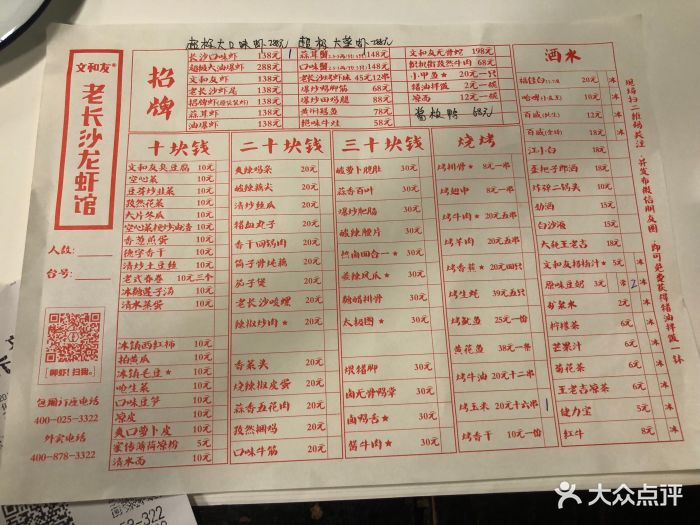 超极大口味虾 288元 超极大蒜虾 288元
文和友
老长沙龙虾馆
人数：
台号：
御虾！扫我。
包厢订座电话
400-025-3322
外卖电话
400-878-3322
招牌
长沙口味虾 138元
超级大油爆虾 138元
文和友虾 138元
老长沙虾尾 138元
138元
蒜茸虾 138元
油爆虾 138元
蒜茸蟹 148元
口味蟹 148元
老长沙烤虾球 45元12串
爆炒鸡脚筋 68元
爆炒田鸡腿 88元
黄焖鸡鱼 78元
绝味牛灶 58元
文和友无骨蛇 198元
枳机街孜然牛肉 68元
小甲鱼★ 20元一只
猪油拌饭 2元一碗
凉面 12元一碗
酱板鸭 68元
十块钱
文和友臭豆腐 10元
空心菜 10元
豆芽炒韭菜 10元
孜然花菜 10元
大片冬瓜 10元
空心菜梗炒油渣 10元
香葱煎蛋 10元
德字香干 10元
清炒土豆丝 10元
老式春卷 10元三个
冰糖莲子汤 10元
清水蒸蛋 10元
冰镇西红柿 10元
拍黄瓜 10元
冰镇毛豆★ 10元
呛生菜 10元
口味豆笋 10元
凉皮 10元
爽口萝卜皮 10元
蜜传薄荷凉粉 5元
清水面 10元
二十块钱
爽辣鸡杂 20元
酸辣藕尖 20元
清炒丝瓜 20元
猪血丸子 20元
香干回锅肉 20元
筒子骨炖藕 20元
茄子煲 20元
老长沙唆螺 20元
辣椒炒肉★ 20元
香菜头 20元
烧辣椒皮蛋 20元
蒜香五花肉 20元
孜然捆鸡 20元
口味牛筋 20元
三十块钱
酸萝卜脆肚 30元
蒜香百叶 30元
爆炒肥肠 30元
酸辣腰片 30元
热卤四合一★ 30元
姜辣凤爪★ 30元
糖醋排骨 30元
太极图★ 30元
煨猪脚 30元
卤无骨鸭掌 30元
卤鸭舌★ 30元
酱牛肉★ 30元
烧烤
烤排骨★ 8元一串
烤翅中 8元一串
烤牛肉★ 20元五串
烤羊肉 20元五串
烤香菇★ 20元四只
烤生蚝 39元五只
烤鱿鱼 25元一份
黄花鱼 38元一条
烤牛油 20元十二串
烤玉米 20元十六串
烤香干 10元一份
酒水
福佳白 20元 冰
哈啤 10元 冰
百威 12元 冰
百威 18元 冰
江小白 20元 冰
歪把子郎酒 20元
炸碎二锅头 10元
劲酒 15元
白沙液 15元
大瓶王老吉 18元 冰
文和友招招汁★ 5元 冰
原味豆奶 3元 常 2 冰
矿泉水 2元 冰
柠檬茶 6元 冰
芒果汁 6元 冰
菊花茶 6元 冰
王老吉凉茶 6元 冰
健力宝 5元 冰
红牛 8元 冰
现场扫二维码关注，并发布微信朋友圈，即可免费获得猪油拌饭一钵
大众点评